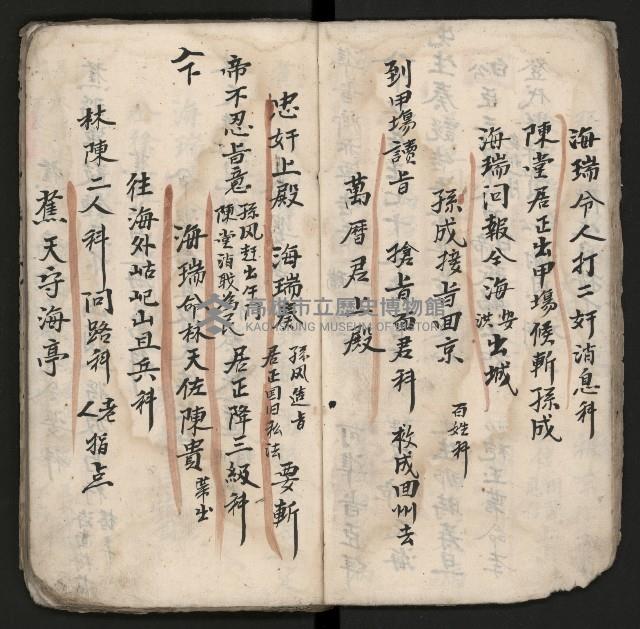 海瑞令人打二奸消息科
陳堂居正出甲塲候斬孫成
海瑞问報全海安洪出城
孫成接旨回京
百姓科
到甲塲讀旨 搶旨面君科 救成回州去
萬曆君上殿
忠奸上殿 海瑞奏 孫风造旨 居正囯旧私法 要斬
帝不忍旨意 孫风赶出午 陳堂消戝為民 居正降三級科
海瑞命林天佐陳貴 䓁出
仒
往海外岵屺山且兵科
林陳二人科 问路科 老人指点
蕉天守海亭
高雄市立歷史博物館
KAOHSIUNG MUSEUM OF HISTORY